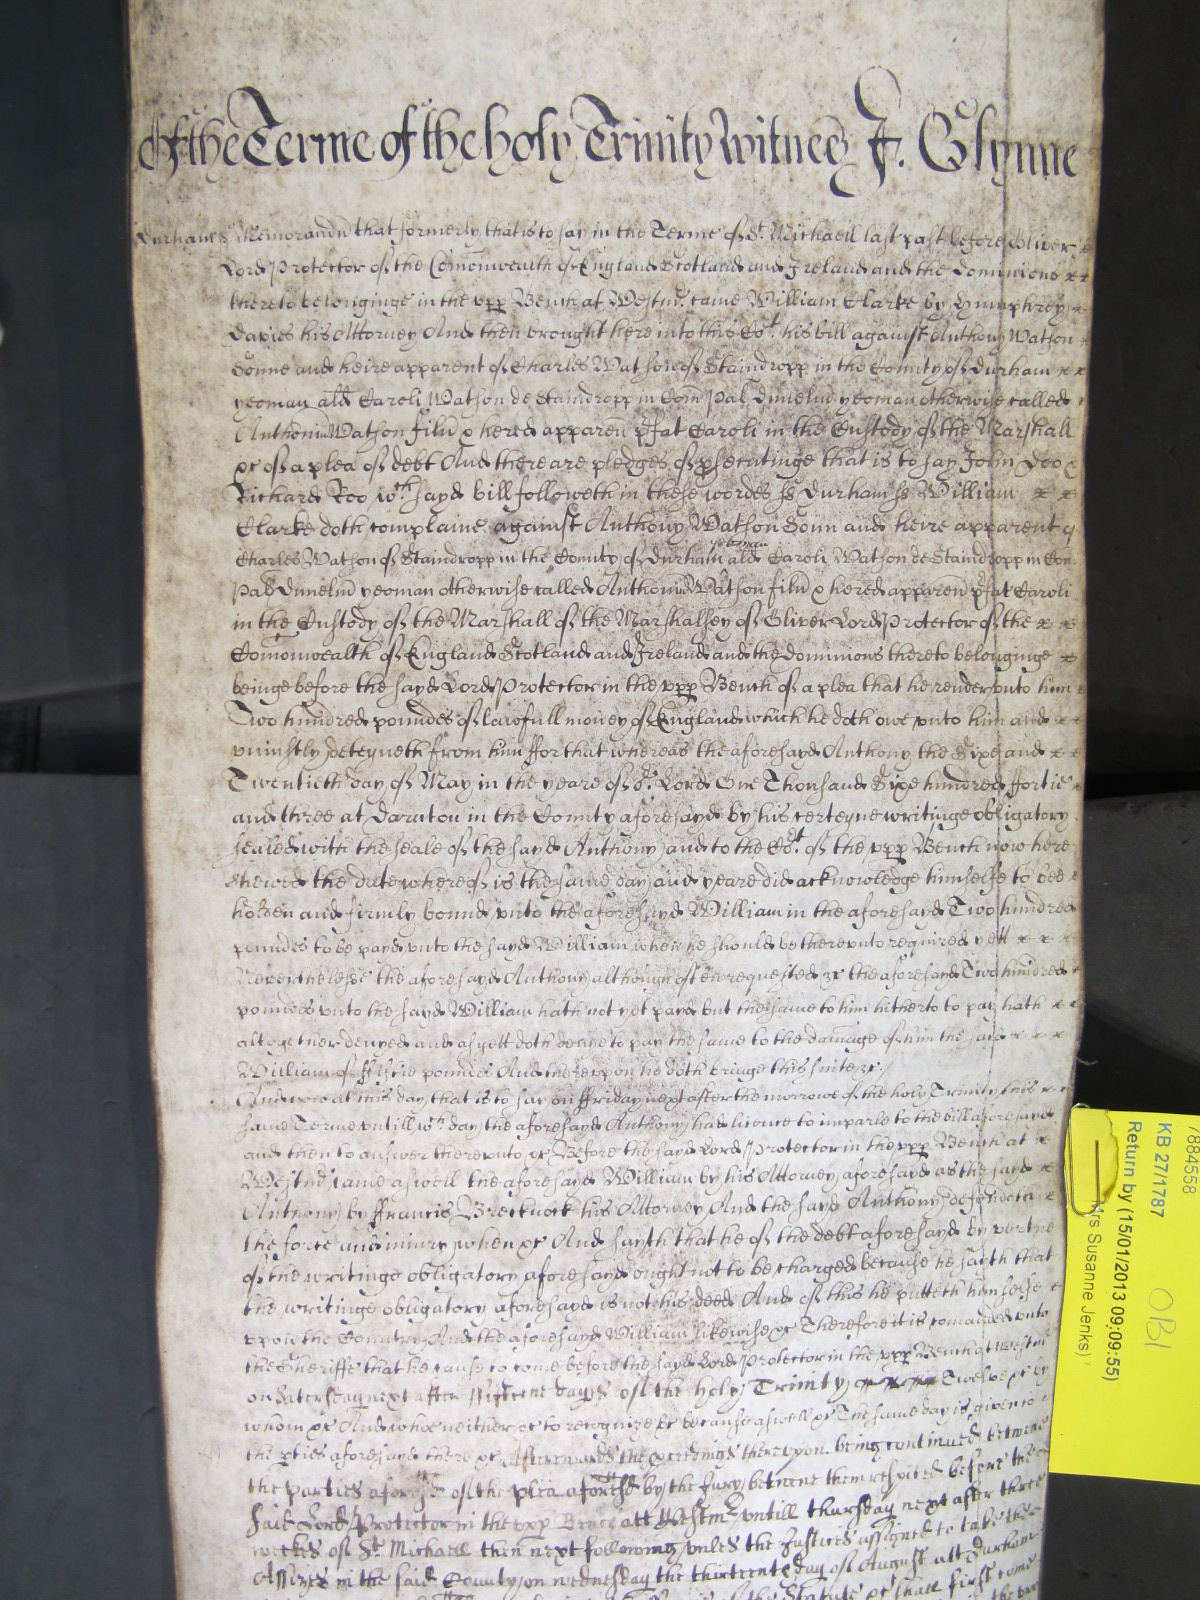 Of the Terme of the holy Trinity Witnes J. Glynne
Durham ss Memorandū that formerly that is to say in the Terme of St. Michaell last past before Oliver
Lord Protector of the Comonwealth of England Scotland and Ireland and the Dominions
thereto belonginge in the vpp Bench at Westmr. came William Clarke by Humphrey
Davies his Attorney And then brought here into this Cort. his bill against Anthony Watson
Sonne and heire apparent of Charles Watson of Staindropp in the County of Durham
yeoman als Caroli Watson de Staindropp in Com Pal Dunelm yeoman otherwise called
Anthonii Watson filiu & hered apparen p̱fat Caroli in the Custody of the Marshall
&c of a plea of debt And there are pledges of p̱secutinge that is to say John Doo &
Richard Roo wch sayd bill followeth in these wordes ss Durham ss William
Clarke doth complaine against Anthony Watson Sonn and heire apparent of
Charles Watson of Staindropp in the County of Durham yeoman als Caroli Watson de Staindropp in Com
Pal Dunelm yeoman otherwise called Anthonii Watson filiu & hered apparen p̱fat Caroli
in the Custody of the Marshall of the Marshalsey of Oliver Lord Protector of the
Comonwealth of England Scotland and Ireland and the Dominions thereto belonginge
beinge before the sayd Lord Protector in the vpp Bench of a plea that he render vnto him
Two hundred poundes of lawfull money of England which he doth owe vnto him and
vniustly deteyneth from him ffor that whereas the aforesayd Anthony the Sixe and
Twentieth day of May in the yeare of or. Lord One Thousand Sixe hundred ffortie
and three at Darnton in the County aforesayd by his certeyne writinge obligatory
sealed with the seale of the sayd Anthony and to the Cort. of the vpp Bench now here
shewed the date whereof is the same day and yeare did acknowledge himselfe to bee
holden and firmly bound vnto the aforesayd William in the aforesayd Two hundred
poundes to be payd vnto the sayd William when he should be therevnto required yett
Neverthelesse the aforesayd Anthony although often requested &c the aforesayd Two hundred
poundes vnto the sayd William hath not yet payd but the same to him hitherto to pay hath
altogether denyed and as yett doth denie to pay the same to the damage of him the sayd
William of ffiftie poundes And therevpon he doth bringe this suite &c.
And now at this day that is to say on ffriday next after the morrowe of the holy Trinity this
same Terme vntill wch day the aforesayd Anthony had licence to imparle to the bill aforesayd
and then to answer therevnto &c Before the sayd Lord Protector in the vpp Bench at
Westmr came aswell the aforesayd William by his Attorney aforesayd as the sayd
Anthony by ffrancis Brecknock his Attorney And the sayd Anthony defendeth
the force and iniury when &c And sayth that he of the debt aforesayd by vertue
of the writinge obligatory aforesayd ought not to be charged because he sayth that
the writinge obligatory aforesayd is not his deed And of this he putteth himselfe
vpon the Countrey And the aforesayd William likewise &c Therefore it is comanded vnto
the Sheriffe that he cause to come before the sayd Lord Protector in the vpp Bench at Westmr
on Satersday next after fifteene dayes of the holy Trinity Twelve &c by
whom &c And who neither &c to recognize &c because aswell &c The same day is given to
the p̱ties aforesayd there &c Afterwards the p̱ceedings therevpon being continued betweene
the parties aforesd of the plea aforesd by the Jury betwene them respited before the
said Lord Protector in the vpp Bench att Westmr vntill thursday next after three
weekes of St Michaell then next following vnles the Justices assigned to take the
Assizes in the said County on wednesday the thirteenth day of August att Durham
the Statute &c shall first come
7884558
KB 27/1787
Return by (15/01/2013 09:09:55)
Mrs Susanne Jenks)
OBI